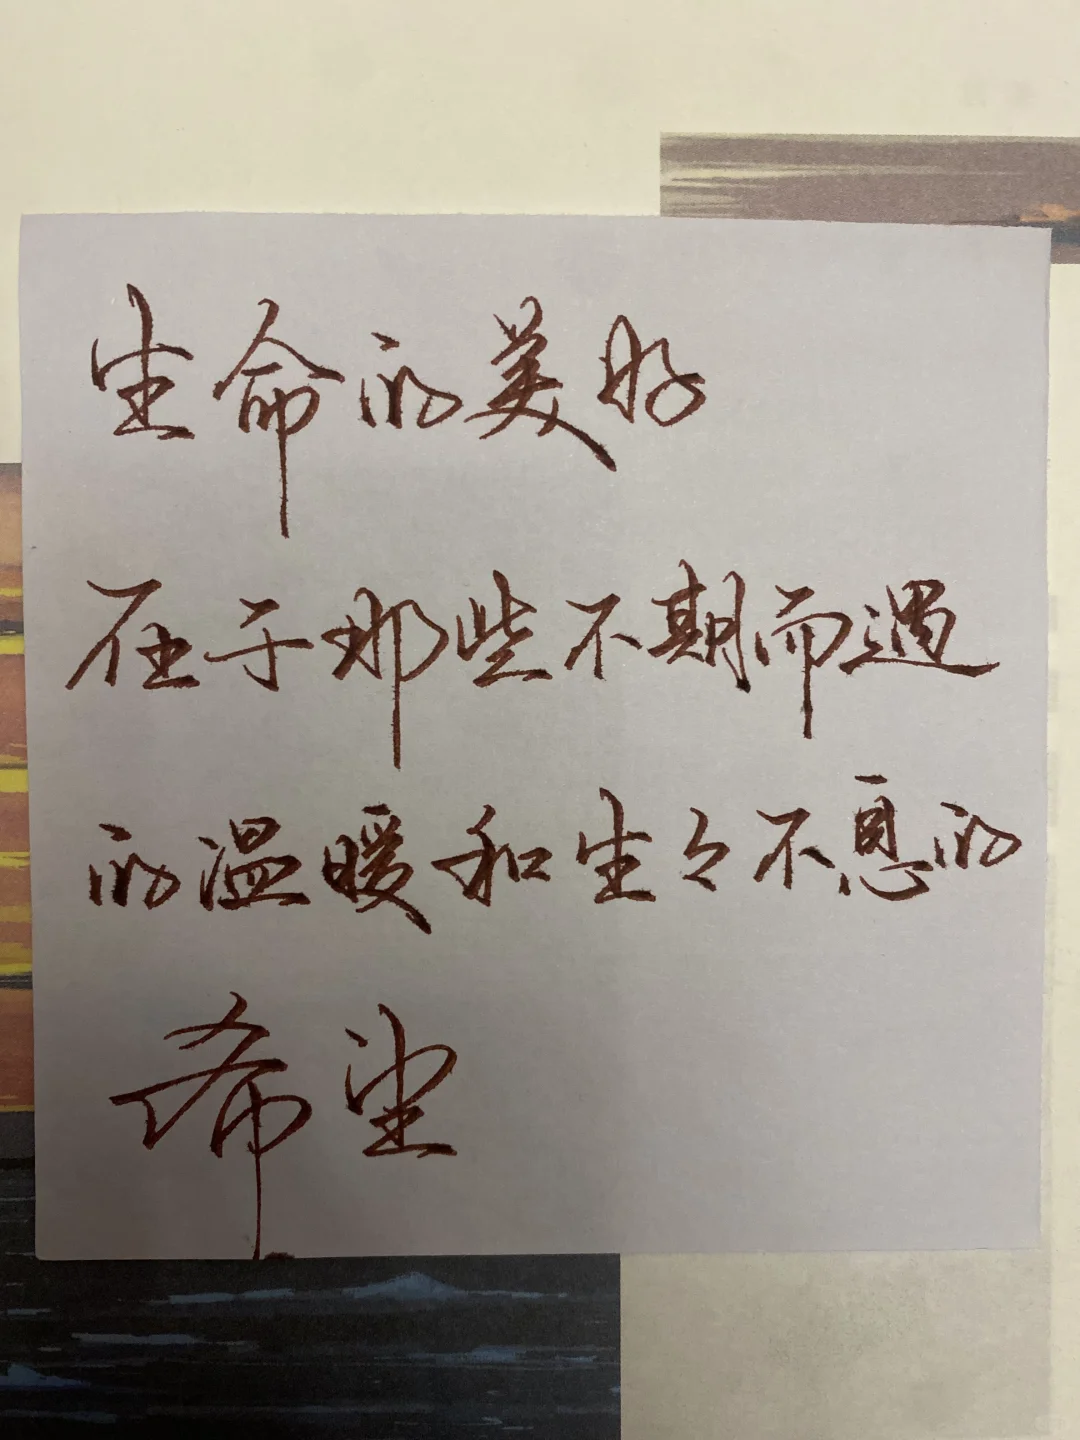 生命的美好
在于那些不期而遇
的温暖和生々不息的
希望